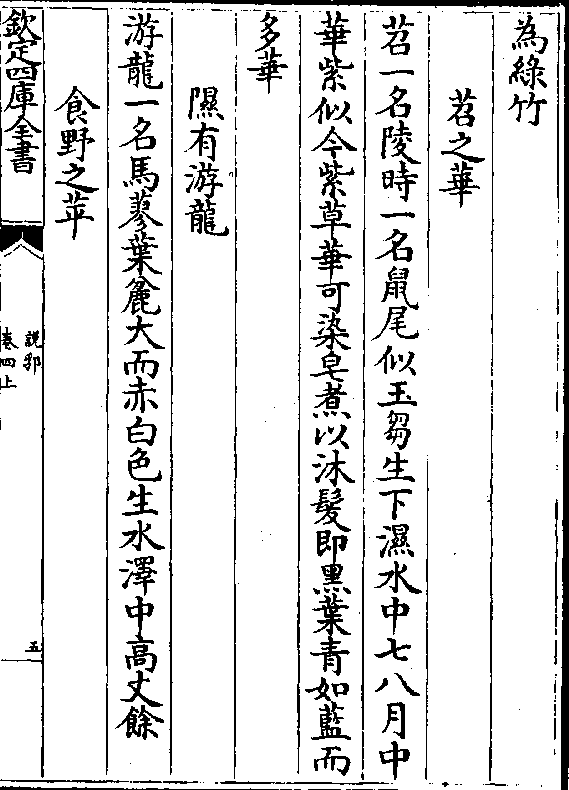 為緑竹
苕之華
苕一名陵時一名鼠尾似玉芻生下濕水中七八月中
華紫似今紫草華可染皂煮以沐髮即黑葉青如藍而
多華
隰有游龍
游龍一名馬蓼葉麄大而赤白色生水澤中高丈餘
食野之苹
欽定四庫全書
說郛
卷四上
五